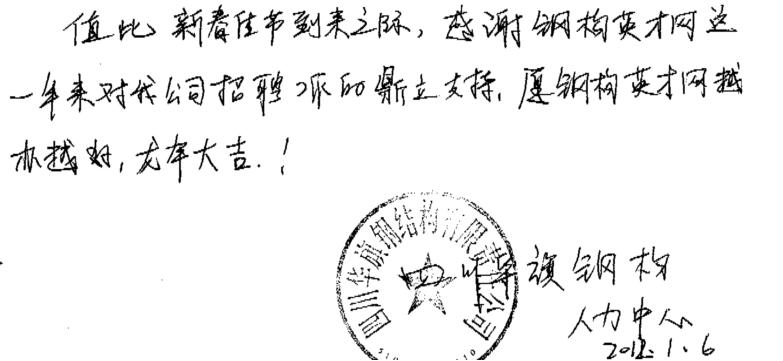 值此新春佳节到来之际，感谢钢构英才网这
一年来对我公司招聘工作的鼎立支持，愿钢构英才网越
办越好，龙年大吉.！
四川华旗钢结构有限责任公司
四川华旗钢构
人力中心
2012.1.6